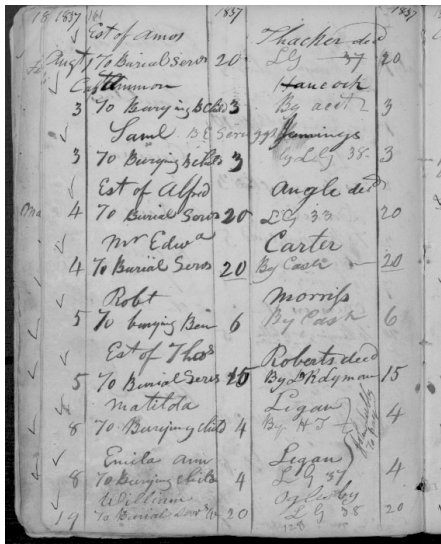 18 1837 161 1837 1837
Est of Amos Thacker decd
Augt 1 To Burial Servs 20 LG 37 20
Capt Ammon Hancock
3 To Burying B Child 3 By acct 3
Saml B E Scruggs Jennings
3 To Burying B Child 3 By LG 38 3
Est of Alfred Angle decd
4 To Burial Servs 20 LG 33 20
Mr Edwd Carter
4 To Burial Servs 20 By Cash 20
Robt Morriss
5 To burying Ben 6 By Cash 6
Est of Thos Roberts decd
5 To Burial Servs 15 By Lyman 15
Matilda Ligan
8 To Burying child 4 By HT 4
Emila Ann Legan
8 To Burying child 4 LG 37 4
William Oglesby
19 To Burial 20 LG 38 20